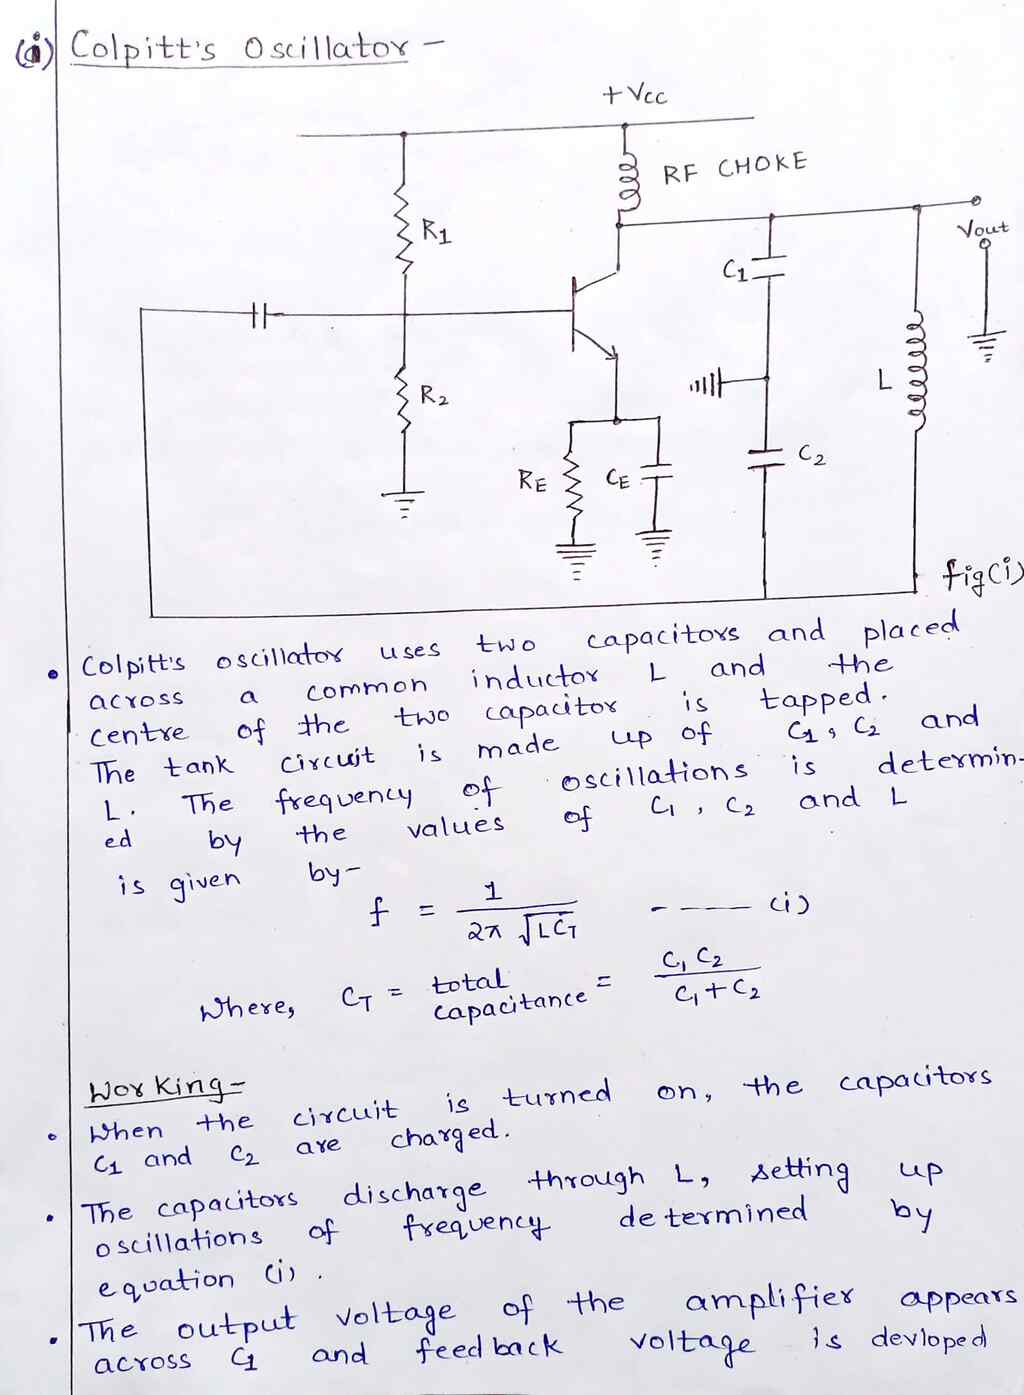 (i) Colpitt's Oscillator -
+ Vcc
RF CHOKE
R1
Vout
C1
L
R2
C2
RE
CE
fig(i)
• Colpitt's oscillator uses two capacitors and placed
across a common inductor L and the
centre of the two capacitor is tapped.
The tank circuit is made up of C1, C2 and
L. The frequency of oscillations is determin-
ed by the values of C1, C2 and L
is given by-
f = 1 / 2π √LCT ----- (i)
Where, CT = total capacitance = C1 C2 / C1 + C2
Working-
• When the circuit is turned on, the capacitors
C1 and C2 are charged.
• The capacitors discharge through L, setting up
oscillations of frequency determined by
equation (i).
• The output voltage of the amplifier appears
across C1 and feedback voltage is devloped